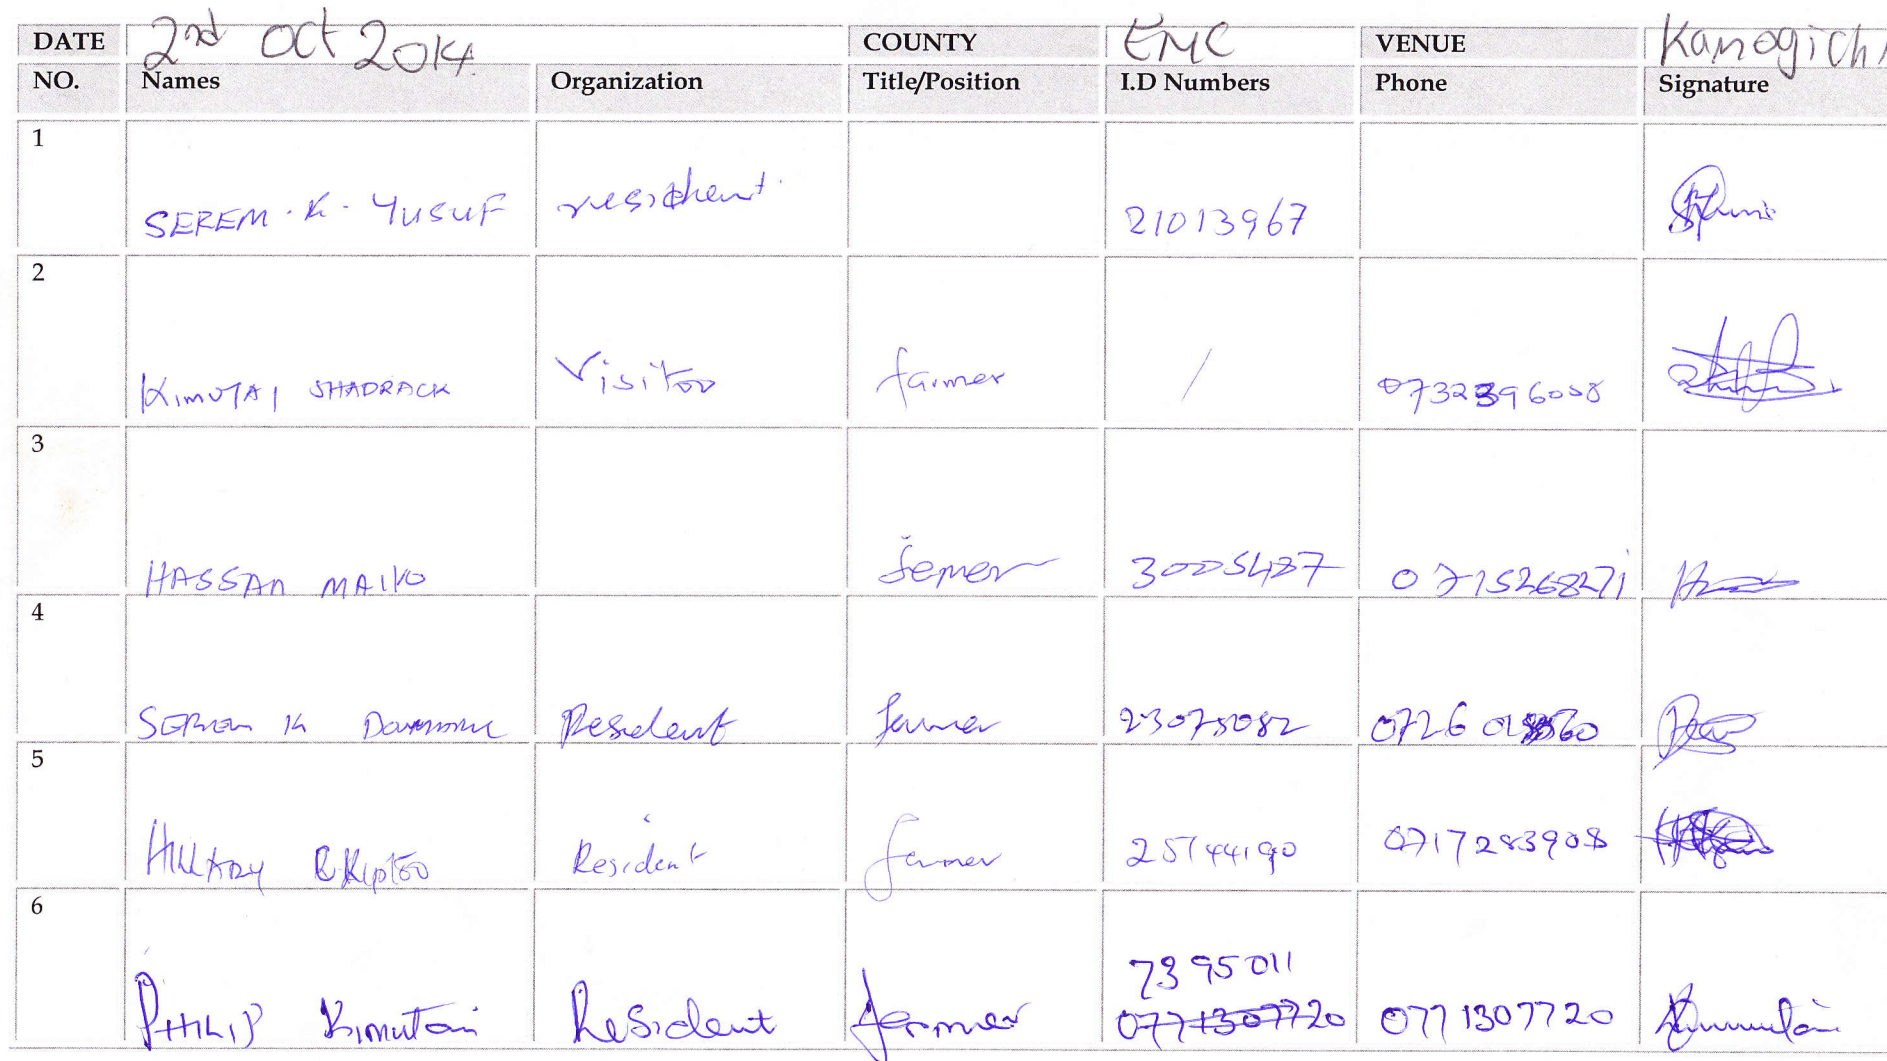 DATE 2nd Oct 2014 COUNTY EMC VENUE Kamogich
NO. Names Organization Title/Position I.D Numbers Phone Signature
1 SEREM . K . YUSUF resident 21013967
2 KIMUTAI SHADRACK Visitor farmer / 0732396008
3 HASSAN MAIYO femer 30005427 0715268271
4 SEREM K Resident farmer 23075082 0726
5 HILLARY Resident farmer 25144190 0717283908
6 PHILIP Kimutai Resident farmer 7395011 0771307720 0771307720